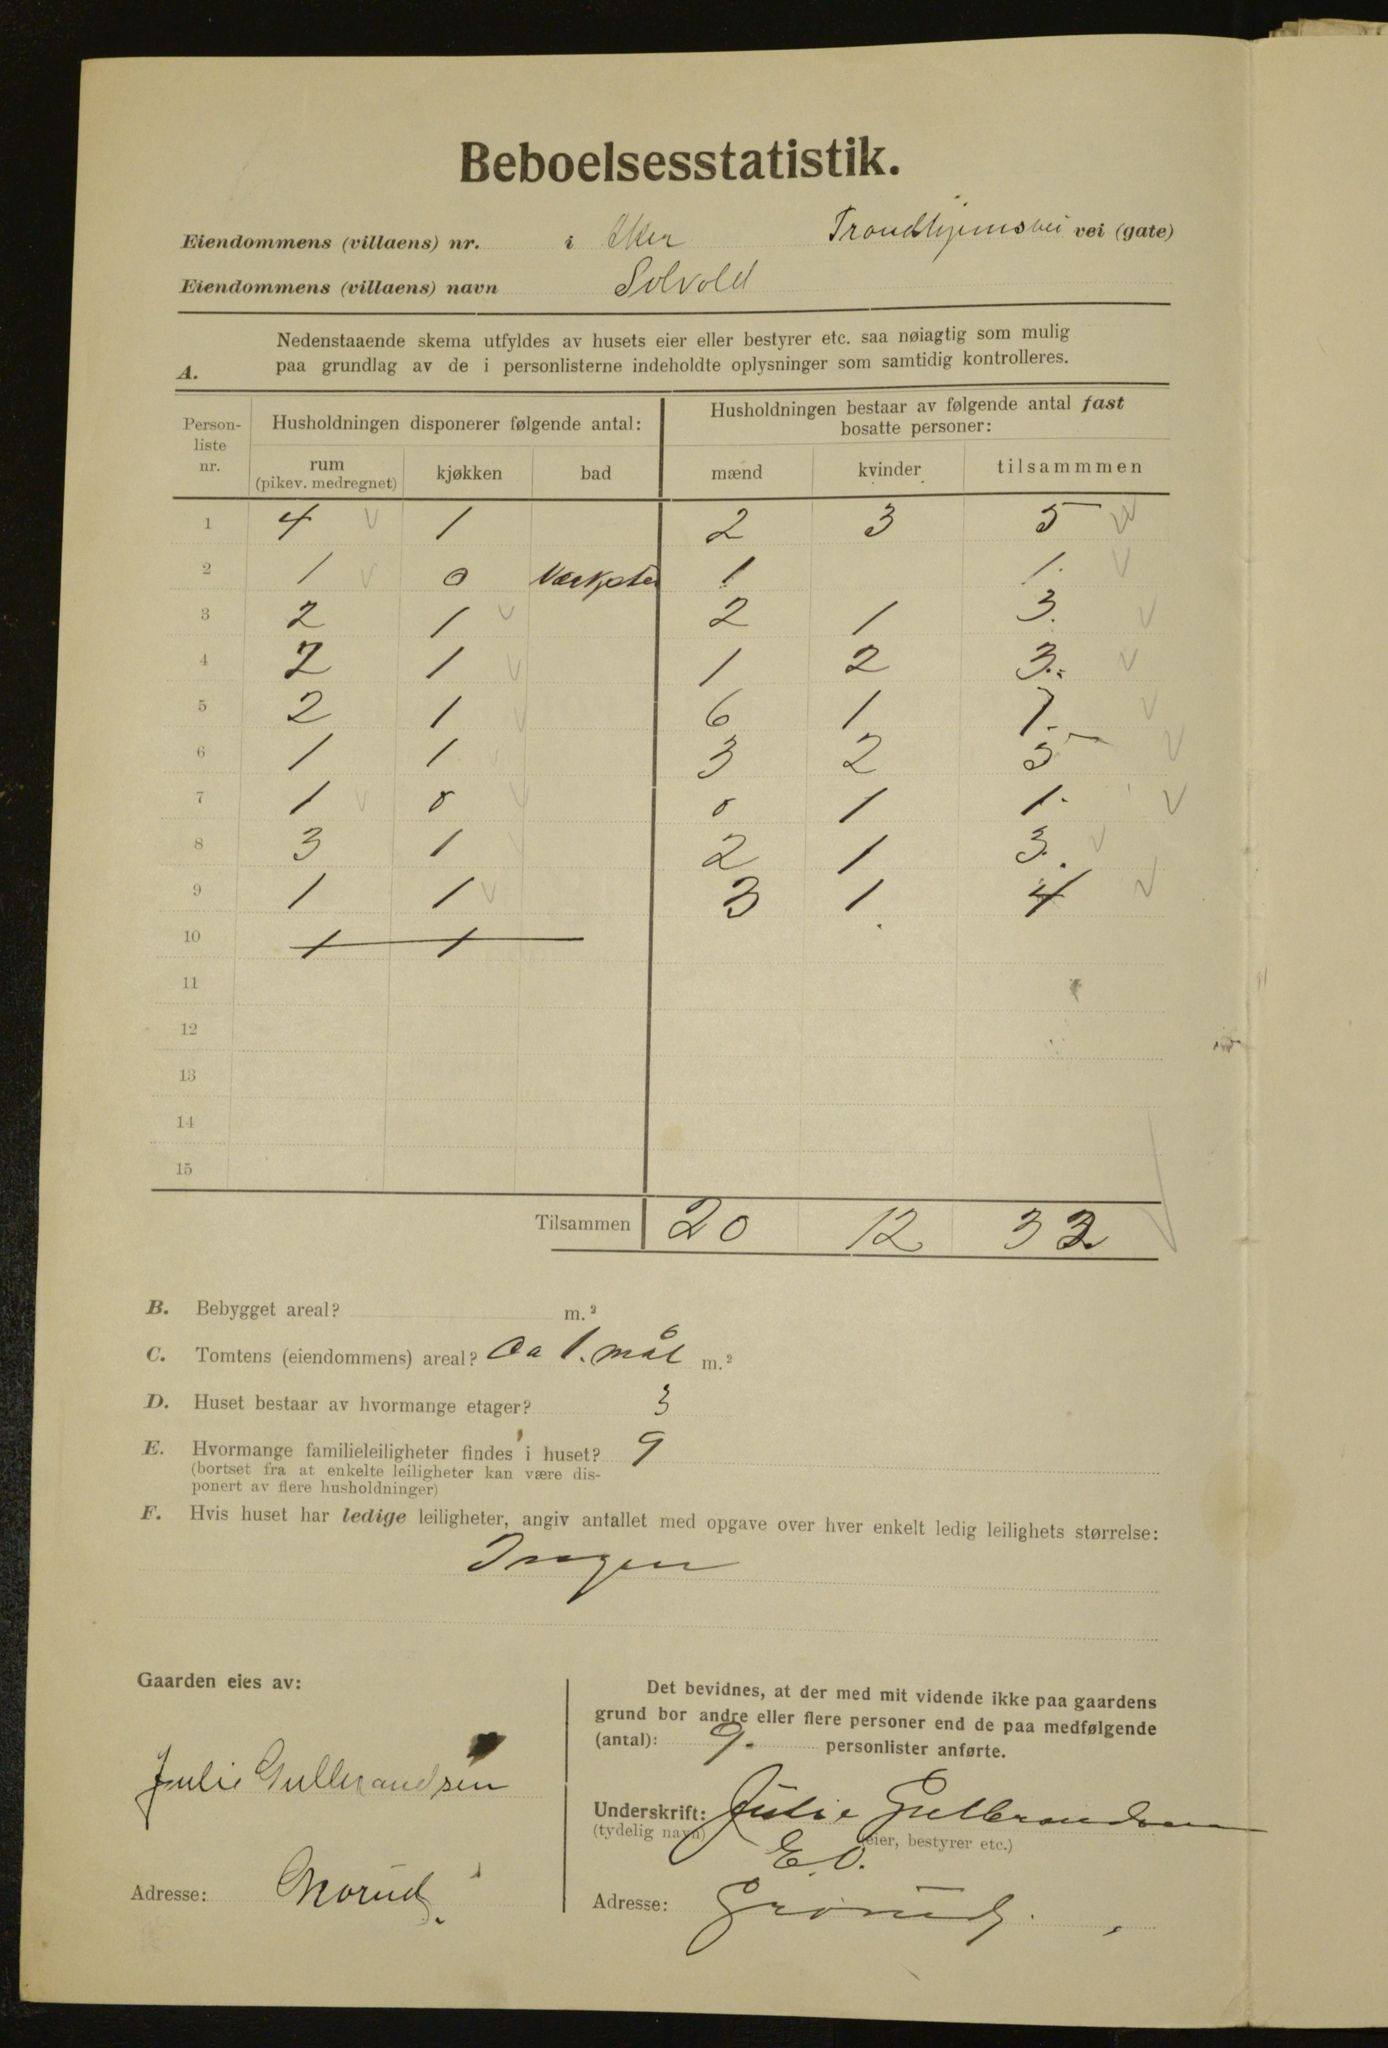 Beboelsesstatistik.
Eiendommens (villaens) nr. i Aker Trondhjemsvei vei (gate)
Eiendommens (villaens) navn Solvold
A. Nedenstaaende skema utfyldes av husets eier eller bestyrer etc. saa nøiagtig som mulig
paa grundlag av de i personlisterne indeholdte oplysninger som samtidig kontrolleres.
Person-liste nr. Husholdningen disponerer følgende antal: Husholdningen bestaar av følgende antal fast bosatte personer:
rum (pikev. medregnet) kjøkken bad mænd kvinder tilsammmen
1 4 1 2 3 5
2 1 0 Værksted 1 1.
3 2 1 2 1 3.
4 2 1 1 2 3.
5 2 1 6 1 7.
6 1 1 3 2 5
7 1 0 0 1 1.
8 3 1 2 1 3.
9 1 1 3 1 4
10 1 1
11
12
13
14
15
Tilsammen 20 12 32
B. Bebygget areal? m.²
C. Tomtens (eiendommens) areal? Ca 1. mål m.²
D. Huset bestaar av hvormange etager? 3
E. Hvormange familieleiligheter findes i huset? 9
(bortset fra at enkelte leiligheter kan være dis-
ponert av flere husholdninger)
F. Hvis huset har ledige leiligheter, angiv antallet med opgave over hver enkelt ledig leilighets størrelse:
Ingen
Gaarden eies av:
Julie Gulbrandsen
Adresse: Grorud.
Det bevidnes, at der med mit vidende ikke paa gaardens
grund bor andre eller flere personer end de paa medfølgende
(antal): 9. personlister anførte.
Underskrift: Julie Gulbrandsen
(tydelig navn) (eier, bestyrer etc.)
Adresse: Grorud.